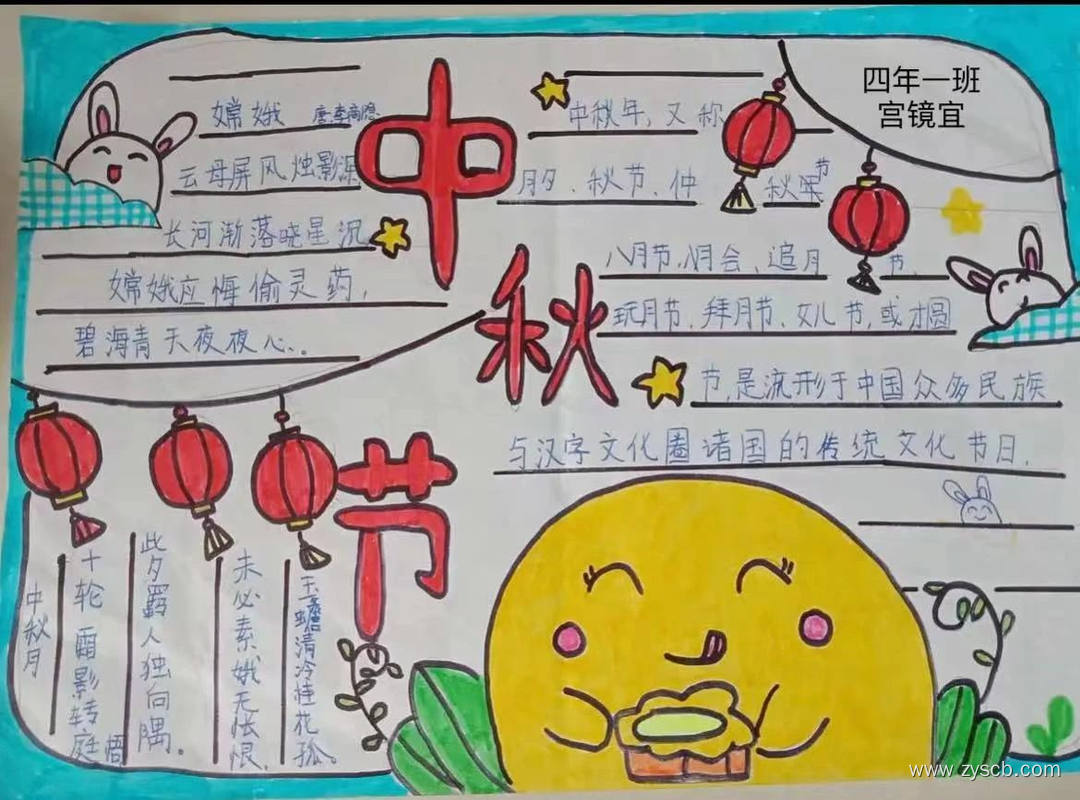 四年一班
宫镜宜
中秋节
嫦娥 唐李商隐
云母屏风烛影深
长河渐落晓星沉
嫦娥应悔偷灵药，
碧海青天夜夜心。
中秋年，又称
月夕、秋节、仲
秋节
八月节、八月会、追月
节、
玩月节、拜月节、女儿节，或才圆
节，是流形于中国众多民族
与汉字文化圈诸国的传统文化节日，
中秋月
十轮霜影转庭梧
此夕羁人独向隅。
未必素娥无怅恨，
玉蟾清冷桂花孤。
www.zyscb.com